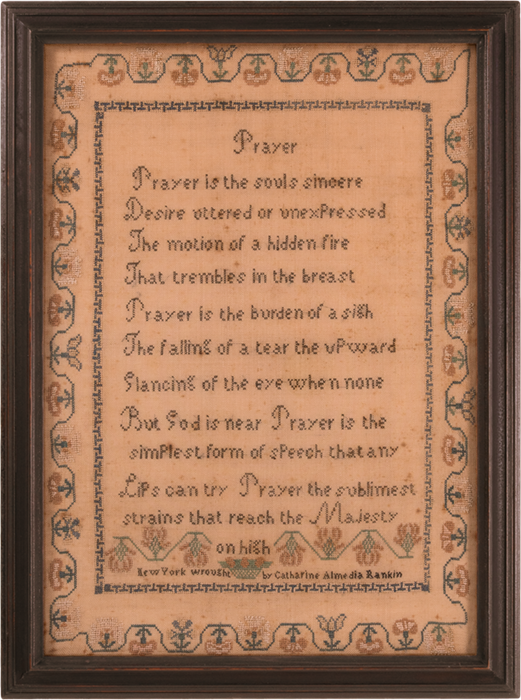 Prayer
Prayer is the souls sincere
Desire uttered or unexpressed
The motion of a hidden fire
That trembles in the breast
Prayer is the burden of a sigh
The falling of a tear the upward
Glancing of the eye when none
But God is near Prayer is the
simplest form of speech that any
Lips can try Prayer the sublimest
strains that reach the Majesty
on high
New York wrought by Catharine Almedia Rankin